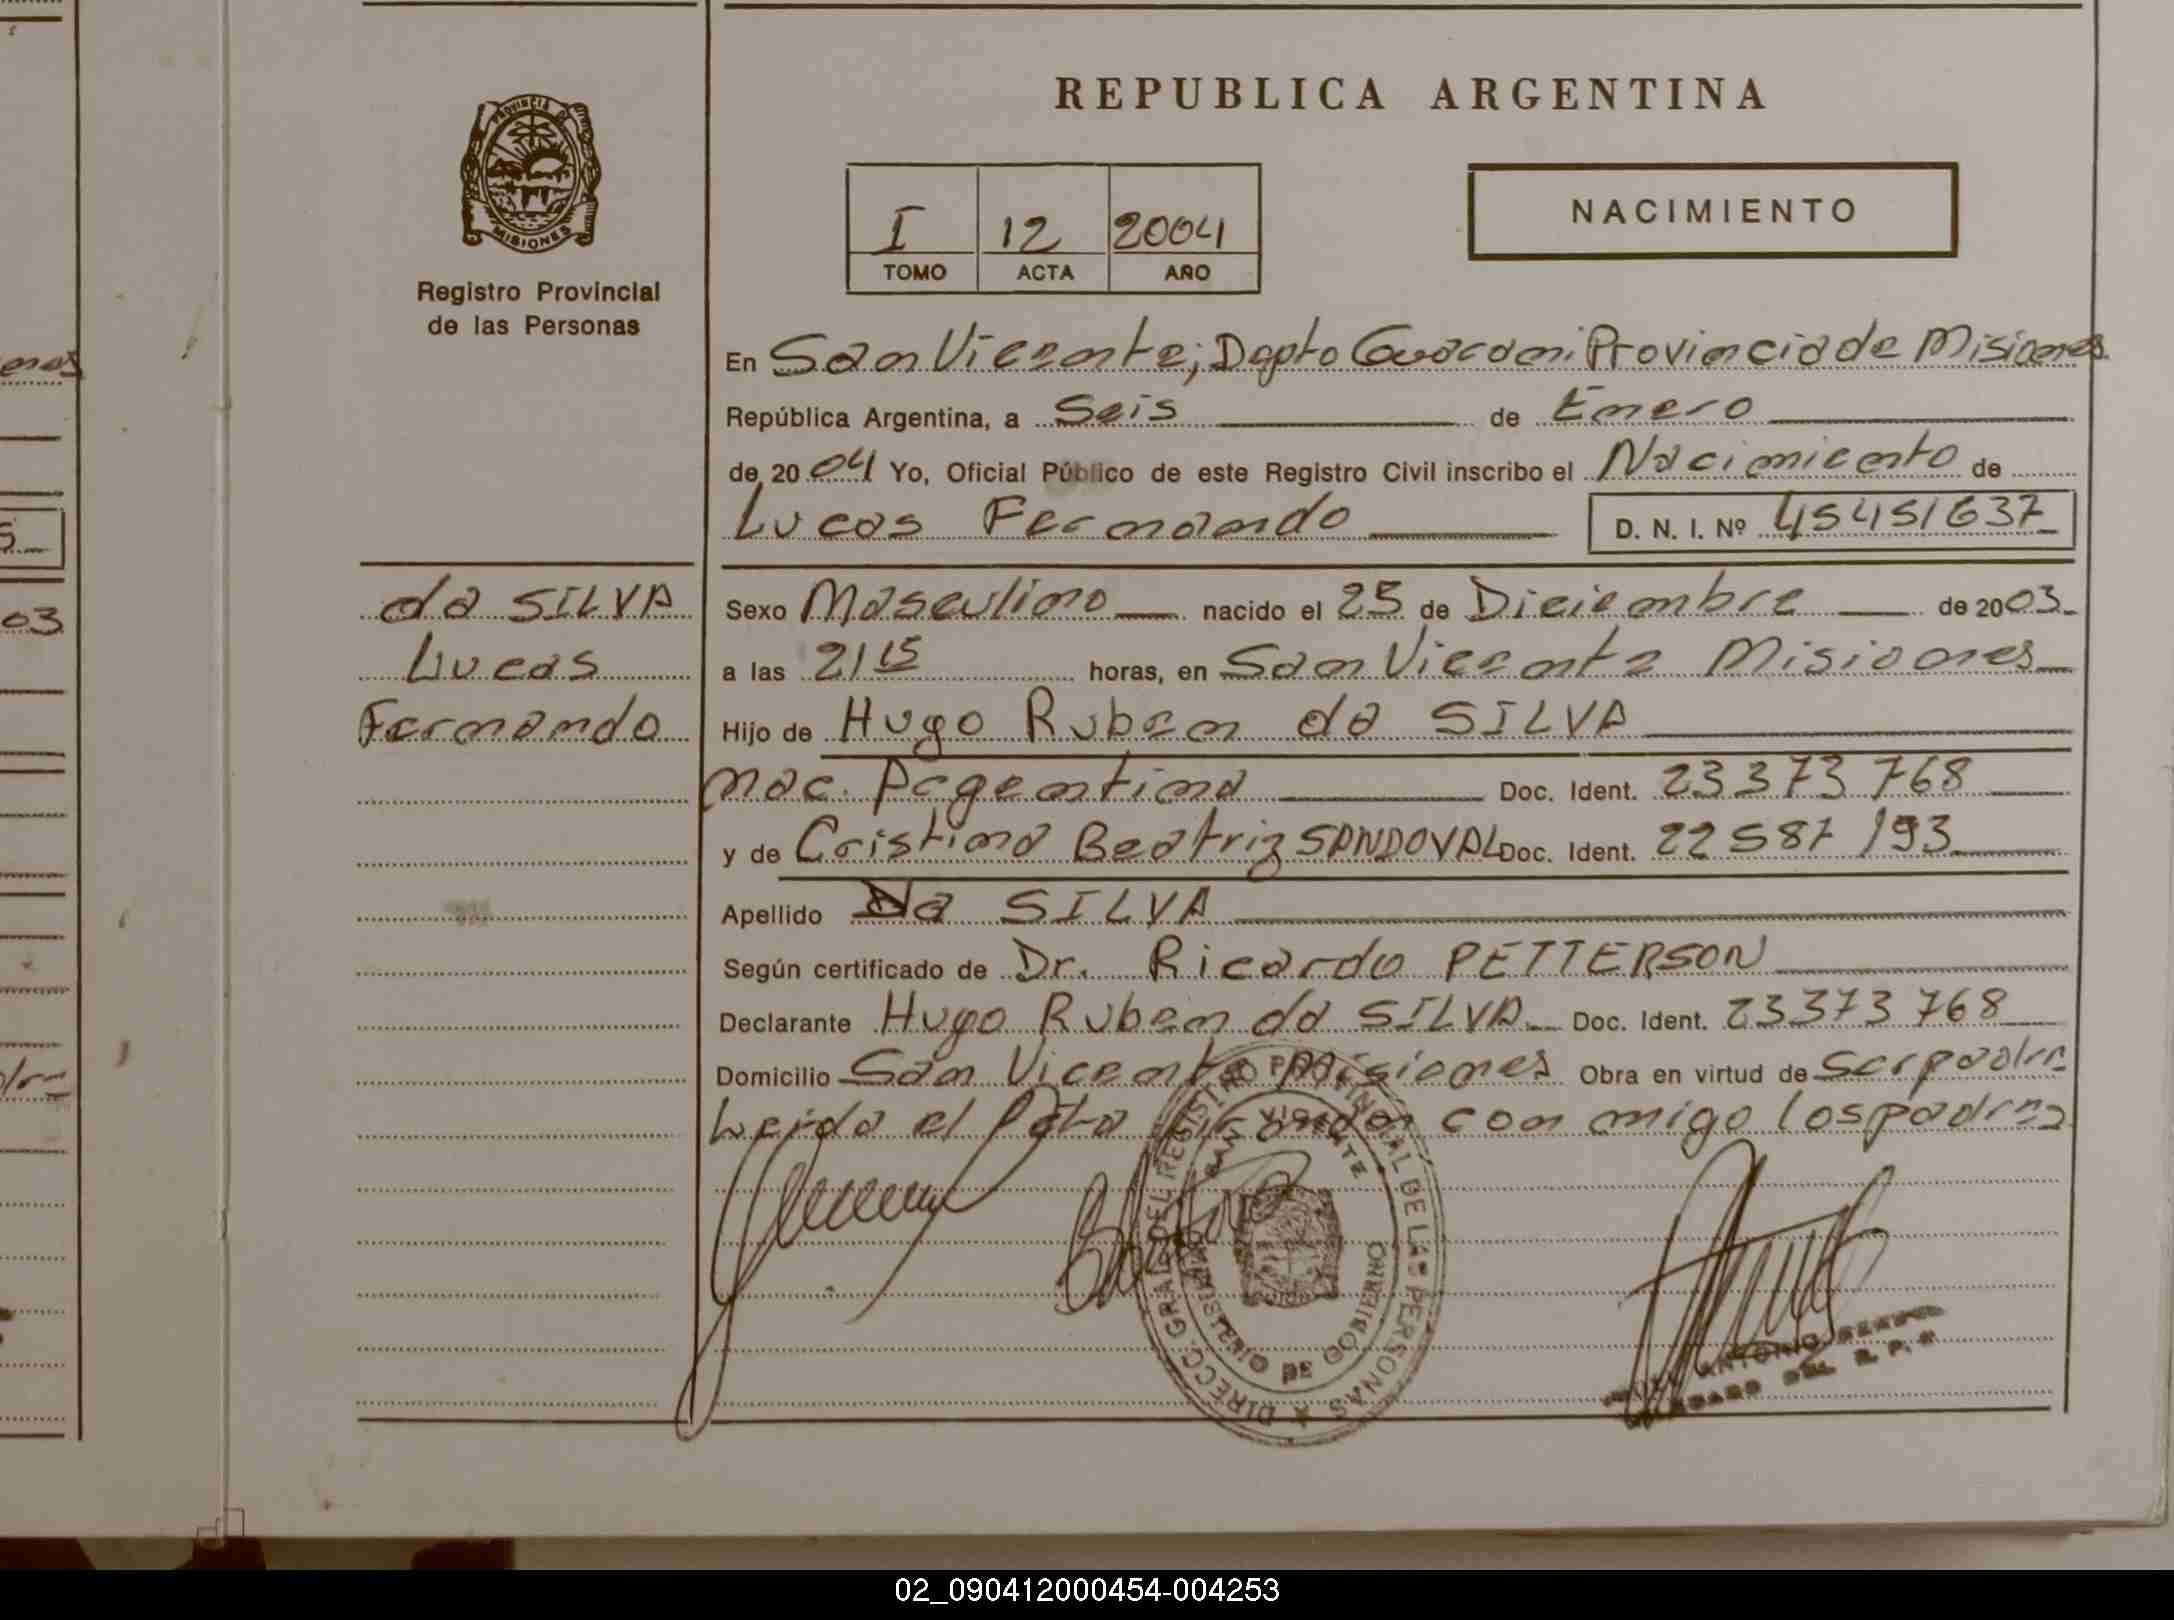 REPUBLICA ARGENTINA
PROVINCIA DE
MISIONES
Registro Provincial
de las Personas
I 12 2004
TOMO ACTA AÑO
NACIMIENTO
En San Vicente, Depto Guarani Provincia de Misiones
República Argentina, a Seis de Enero
de 2004 Yo, Oficial Público de este Registro Civil inscribo el Nacimiento de
Lucas Fernando D. N. I. Nº 45451637
da SILVA
Lucas
Fernando
Sexo Masculino nacido el 25 de Diciembre de 2003
a las 21 15 horas, en San Vicente Misiones
Hijo de Hugo Ruben da SILVA
nac. Argentina Doc. Ident. 23 373 768
y de Cristina Beatriz SANDOVAL Doc. Ident. 22 587 193
Apellido da SILVA
Según certificado de Dr. Ricardo PETTERSON
Declarante Hugo Ruben da SILVA Doc. Ident. 23 373 768
Domicilio San Vicente Misiones Obra en virtud de ser padre
Leida el Acta firmando con migo los padres
DIRECC. GRAL. DEL REGISTRO PROVINCIAL DE LAS PERSONAS
SAN VICENTE
MINISTERIO DE GOBIERNO
ANTONIO
DEL R. P. P
02_090412000454-004253